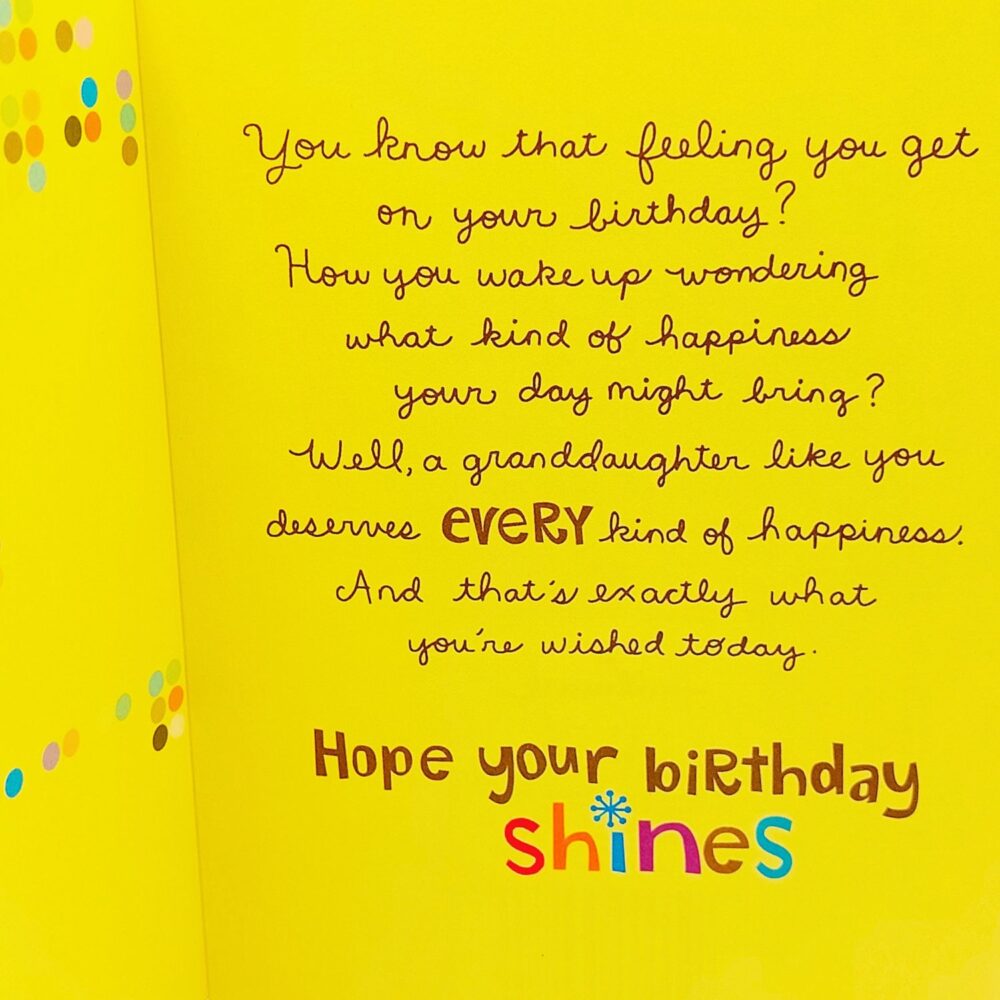 You know that feeling you get
on your birthday?
How you wake up wondering
what kind of happiness
your day might bring?
Well, a granddaughter like you
deserves EVERY kind of happiness.
And that's exactly what
you're wished today.
Hope your biRthday
shines